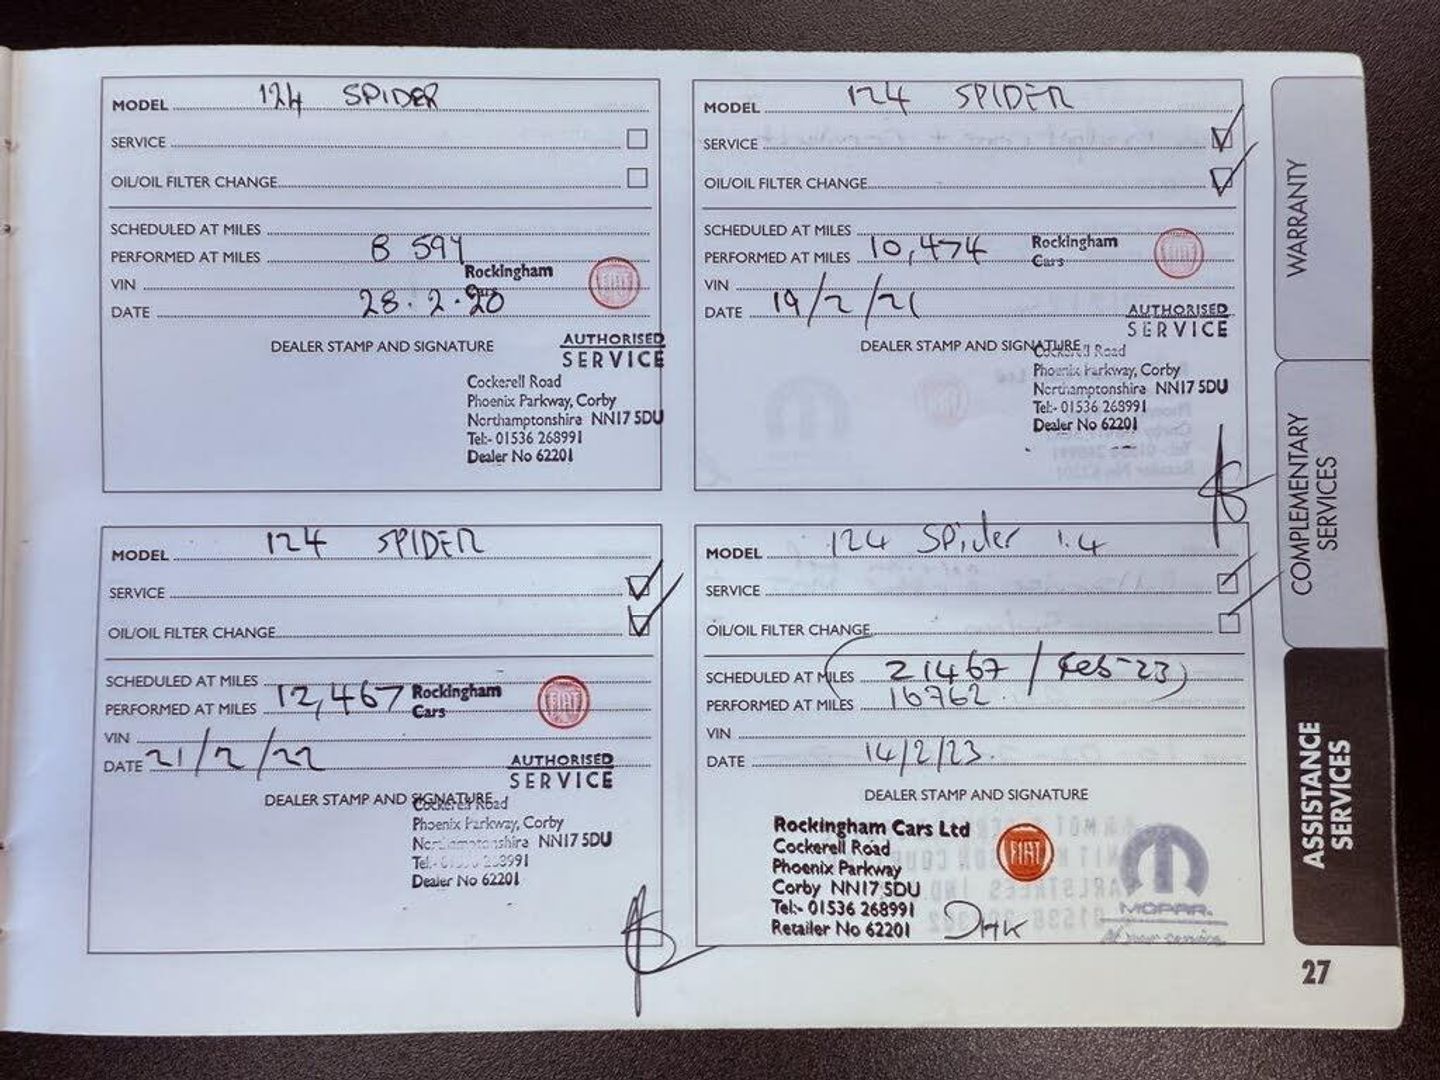 MODEL 124 SPIDER
SERVICE
OIL/OIL FILTER CHANGE
SCHEDULED AT MILES
PERFORMED AT MILES 8 594
VIN
DATE 28.2.20
Rockingham
Cars
FIAT
DEALER STAMP AND SIGNATURE
AUTHORISED
SERVICE
Cockerell Road
Phoenix Parkway, Corby
Northamptonshire NN17 5DU
Tel:- 01536 268991
Dealer No 62201
MODEL 124 SPIDER
SERVICE
OIL/OIL FILTER CHANGE
SCHEDULED AT MILES
PERFORMED AT MILES 10,474
VIN
DATE 19/2/21
Rockingham
Cars
FIAT
DEALER STAMP AND SIGNATURE
AUTHORISED
SERVICE
Cockerell Road
Phoenix Parkway, Corby
Northamptonshire NN17 5DU
Tel:- 01536 268991
Dealer No 62201
MODEL 124 SPIDER
SERVICE
OIL/OIL FILTER CHANGE
SCHEDULED AT MILES
PERFORMED AT MILES 12,467
VIN
DATE 21/2/22
Rockingham
Cars
FIAT
DEALER STAMP AND SIGNATURE
AUTHORISED
SERVICE
Cockerell Road
Phoenix Parkway, Corby
Northamptonshire NN17 5DU
Tel:- 01536 268991
Dealer No 62201
MODEL 124 Spider 1.4
SERVICE
OIL/OIL FILTER CHANGE
SCHEDULED AT MILES (21467 / Feb-23)
PERFORMED AT MILES 16762
VIN
DATE 14/2/23.
DEALER STAMP AND SIGNATURE
Rockingham Cars Ltd
Cockerell Road
Phoenix Parkway
Corby NN17 5DU
Tel:- 01536 268991
Retailer No 62201
FIAT
MOPAR.
At your service.
WARRANTY
COMPLEMENTARY
SERVICES
ASSISTANCE
SERVICES
27